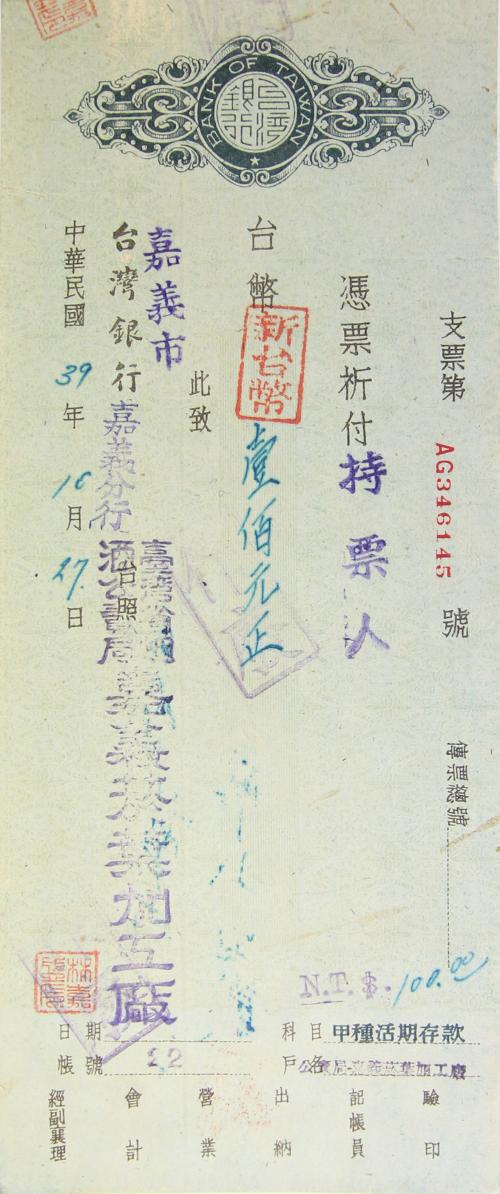 BANK OF TAIWAN
銀行 台灣
支票第 AG346145 號
傳票總號
憑票祈付持票人
台幣 新台幣 壹佰元正
此致
嘉義市
台灣銀行嘉義分行 台照
臺灣省菸酒公賣局嘉義菸葉加工廠
中華民國 39 年 10 月 27 日
N.T.$. 100.00
科目 甲種活期存款
戶名 公賣局嘉義菸葉加工廠
日期
帳號 22
驗印
記帳員
出納
營業
會計
經副襄理